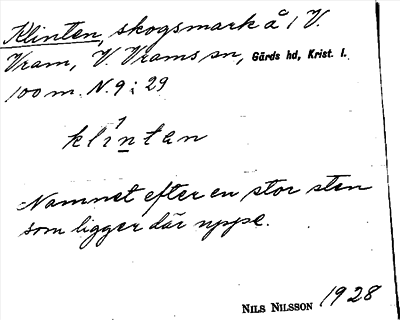 Klinten, skogsmark å 1 V.
Vram, V. Vrams sn, Gärds hd, Krist. l.
100 m. N. 9:29
klíntan
Namnet efter en stor sten
som ligger där uppe.
NILS NILSSON 1928